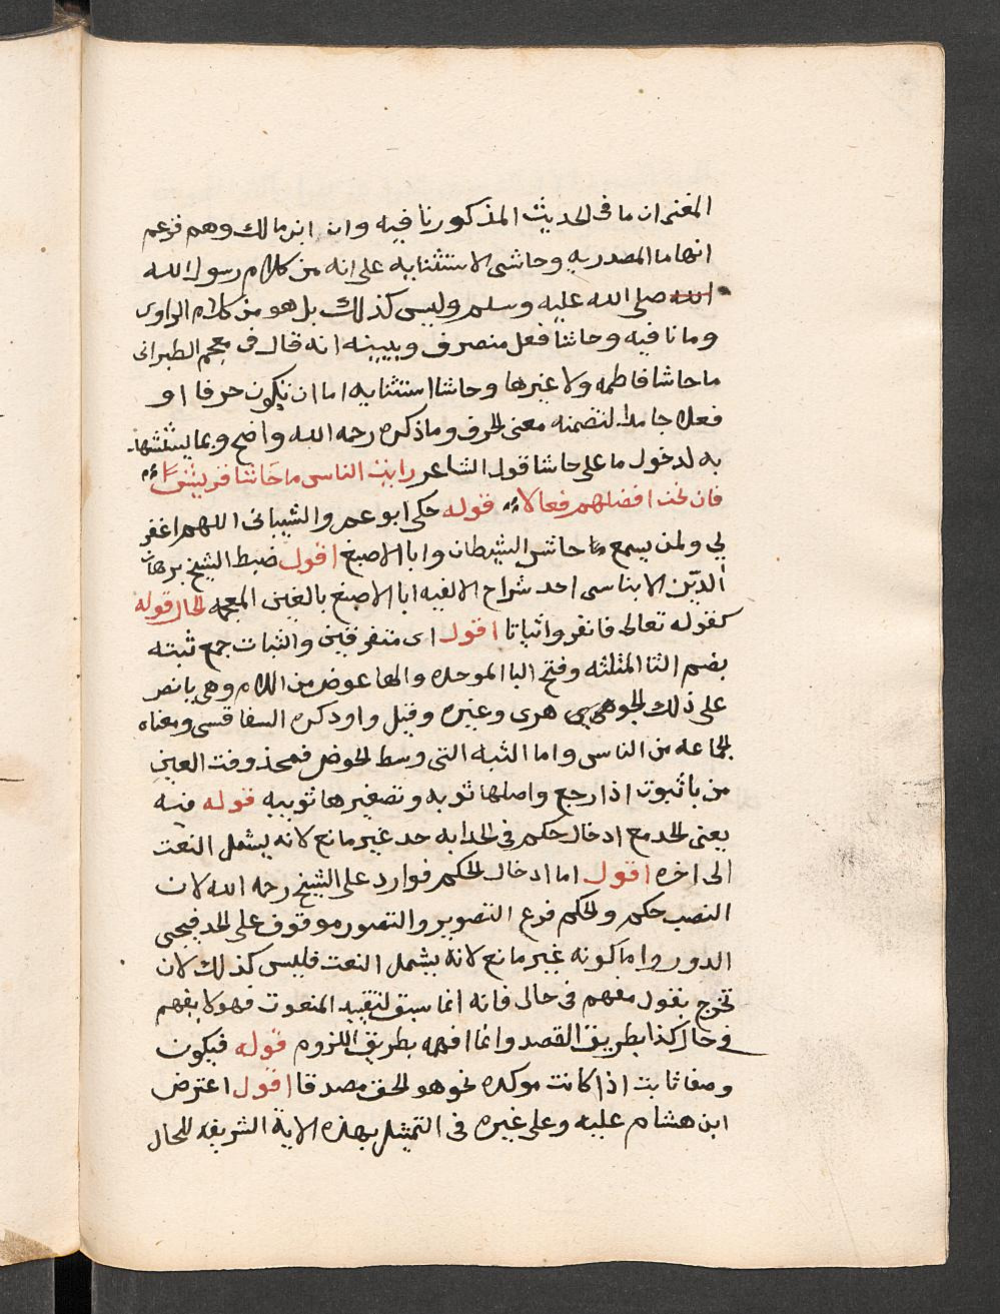 المغنى ان ما فى الحديث المذكور نافيه وان ابن مالك وهم فزعم
انها ما المصدريه وحاشى الاستثنايه على انه من كلام رسول الله
الله صلى الله عليه وسلم وليس كذلك بل هو من كلام الراوى
وما نافيه وحاشا فعل متصرف ويبينه انه قال فى معجم الطبرانى
ما حاشا فاطمه ولا غيرها وحاشا استثنايه اما ان تكون حرفا او
فعلا جامدا لتضمنه معنى الحرف وما ذكره رحمه الله واضح وبما يستشهد
به لدخول ما على حاشا قول الشاعر رايت الناس ما حاشا قريش
فان نحن افضلهم فعالا قوله حكى ابو عمر والشيبانى اللهم اغفر
لي ولمن يسمع ما حاشى الشيطان وابا الاصبغ اقول ضبط الشيخ برهان
الدين الابناسى احد شراح الالفيه ابا الاصبغ بالغين المعجمه الحال قوله
كقوله تعالى فانفروا ثباتا اقول اى متفرقين والثبات جمع ثبته
بضم الثا المثلثه وفتح البا الموحده والها عوض من اللام وهى يا نص
على ذلك الجوهرى هرى وغيره وقيل واو ذكره السفاقسى ومعناه
الجماعه من الناس واما الثبه التى وسط الحوض فمحذوفت العين
من باثبوت اذا رجع واصلها ثوبه وتصغيرها ثويبه قوله فيه
يعنى الحد مع ادخال حكم فى الحدابه حد غير مانع لانه يشمل النعت
الى اخره اقول اما ادخال الحكم فوارد على الشيخ رحمه الله لان
النصب حكم والحكم فرع التصوير والتصور موقوف على الحد فيجى
الدور واما كونه غير مانع لانه يشمل النعت فليس كذلك لان
تخرج بقول مفهم فى حال فانه انما سبق لتقييد المنعوت فهو لا يفهم
فى حال كذا بطريق القصد وانما افهمه بطريق اللزوم قوله فيكون
وصفا ثابت اذا كانت موكده نحو هو الحق مصدقا اقول اعترض
ابن هشام عليه وعلى غيره فى التمثيل بهذه الاية الشريفه للحال